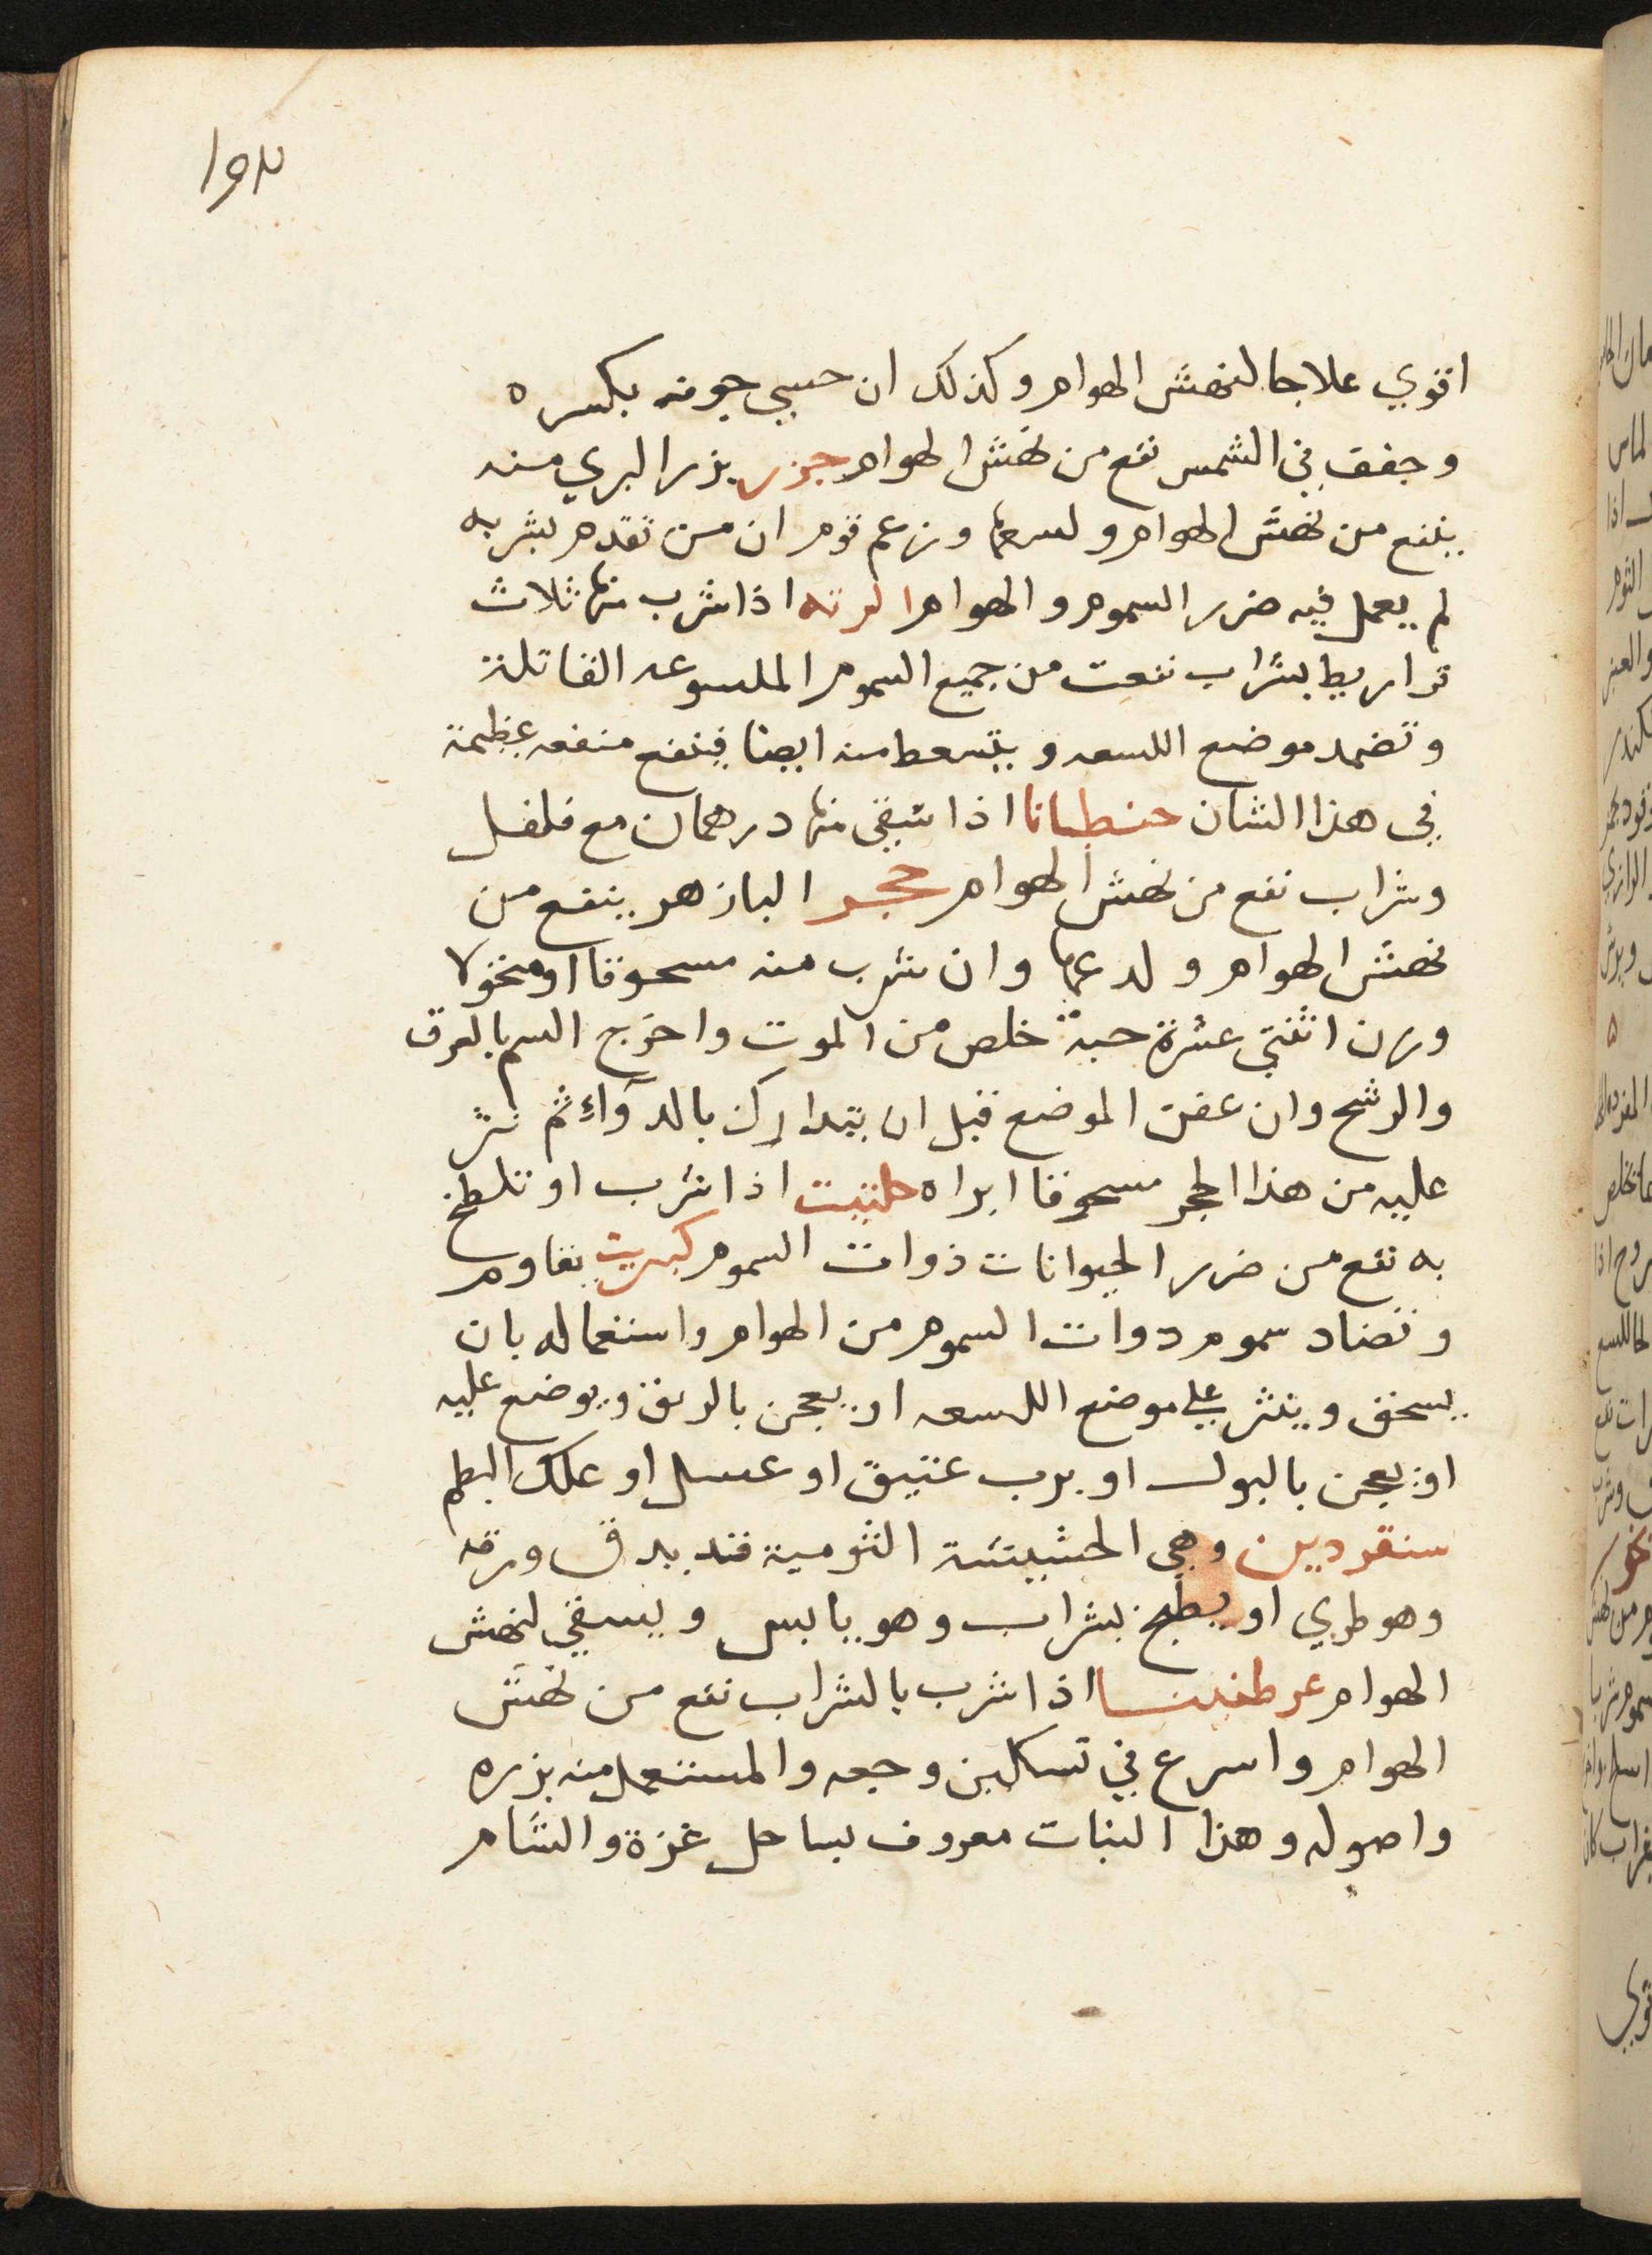 ١٥٨
اقوي علاجا لنهش الهوام وكذلك ان حسي جوفه بكسره
وجفف في الشمس نفع من نهش الهوام جزر بزر البري منه
ينفع من نهش الهوام ولسعها وزعم قوم ان من تقدم بشربه
لم يعمل فيه ضرر السموم والهوام الرته اذا شرب منها ثلاث
قراريط بشراب نفعت من جميع السموم الملسوعه القاتلة
وتضمد موضع اللسعه ويتسعط منه ايضا فينفع منفعه عظيمة
في هذا الشان جنطيانا اذا سقي منها درهمان مع فلفل
وشراب نفع من نهش الهوام حجر البازهر ينفع من
نهش الهوام ولدعها وان شرب منه مسحوقا او منخولا
وزن اثنتي عشرة حبة خلص من الموت واخرج السم بالعرق
والرشح وان عفن الموضع قبل ان يتدارك بالدوآء ثم نثر
عليه من هذا الحجر مسحوقا ابراه حلتيت اذا شرب او تلطخ
به نفع من ضرر الحيوانات ذوات السموم كبريت يقاوم
وتضاد سموم دوات السموم من الهوام واستعماله بان
يسحق وينثر علي موضع اللسعه او يعجن بالريق ويوضع عليه
او يعجن بالبول او برب عتيق او عسل او علك البطم
سنقرديون وهي الحشيشة الثومية قد يدق ورقه
وهو طري او يطبخ بشراب وهو يابس ويسقي لنهش
الهوام عرطنيسا اذا شرب بالشراب نفع من نهش
الهوام واسرع في تسكين وجعه والمستعمل منه بزره
واصوله وهذا النبات معروف بساحل غزة والشام